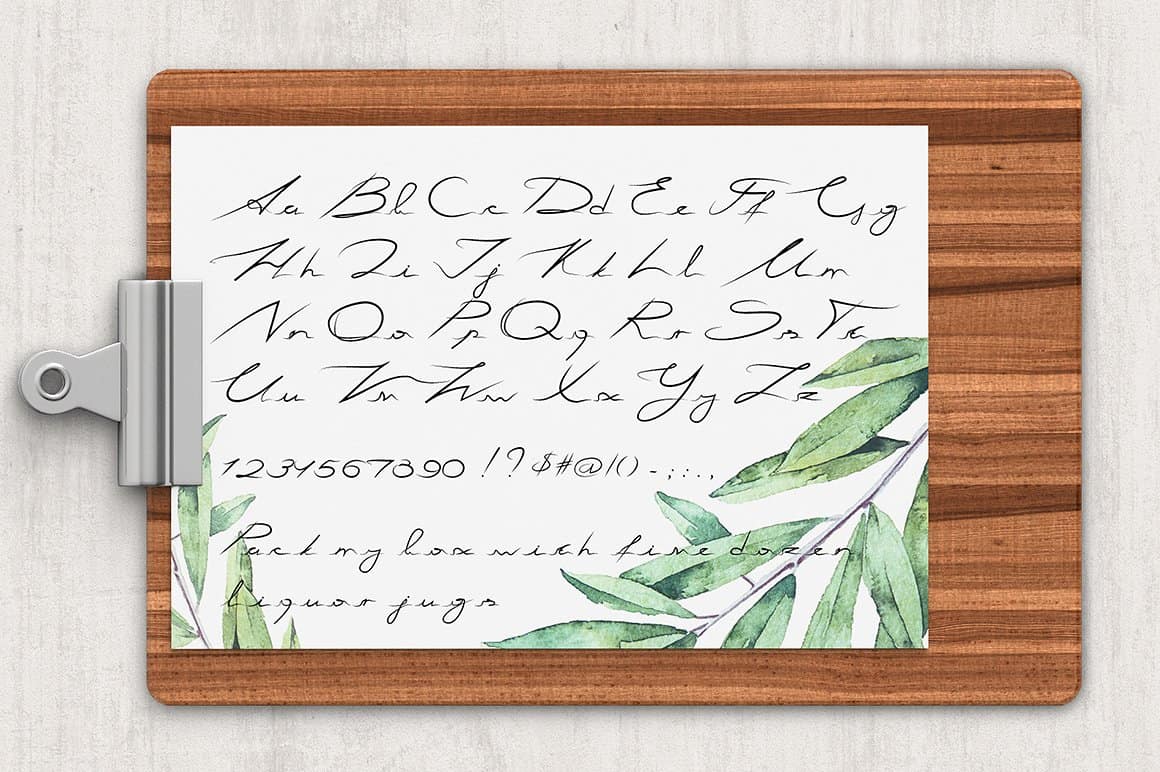 Aa Bb Cc Dd Ee Ff Gg
Hh Ii Jj Kk Ll Mm
Nn Oo Pp Qq Rr Ss Tt
Uu Vv Ww Xx Yy Zz
1234567890 !?$#@/() - ; : . ,
Pack my box with five dozen
liquor jugs